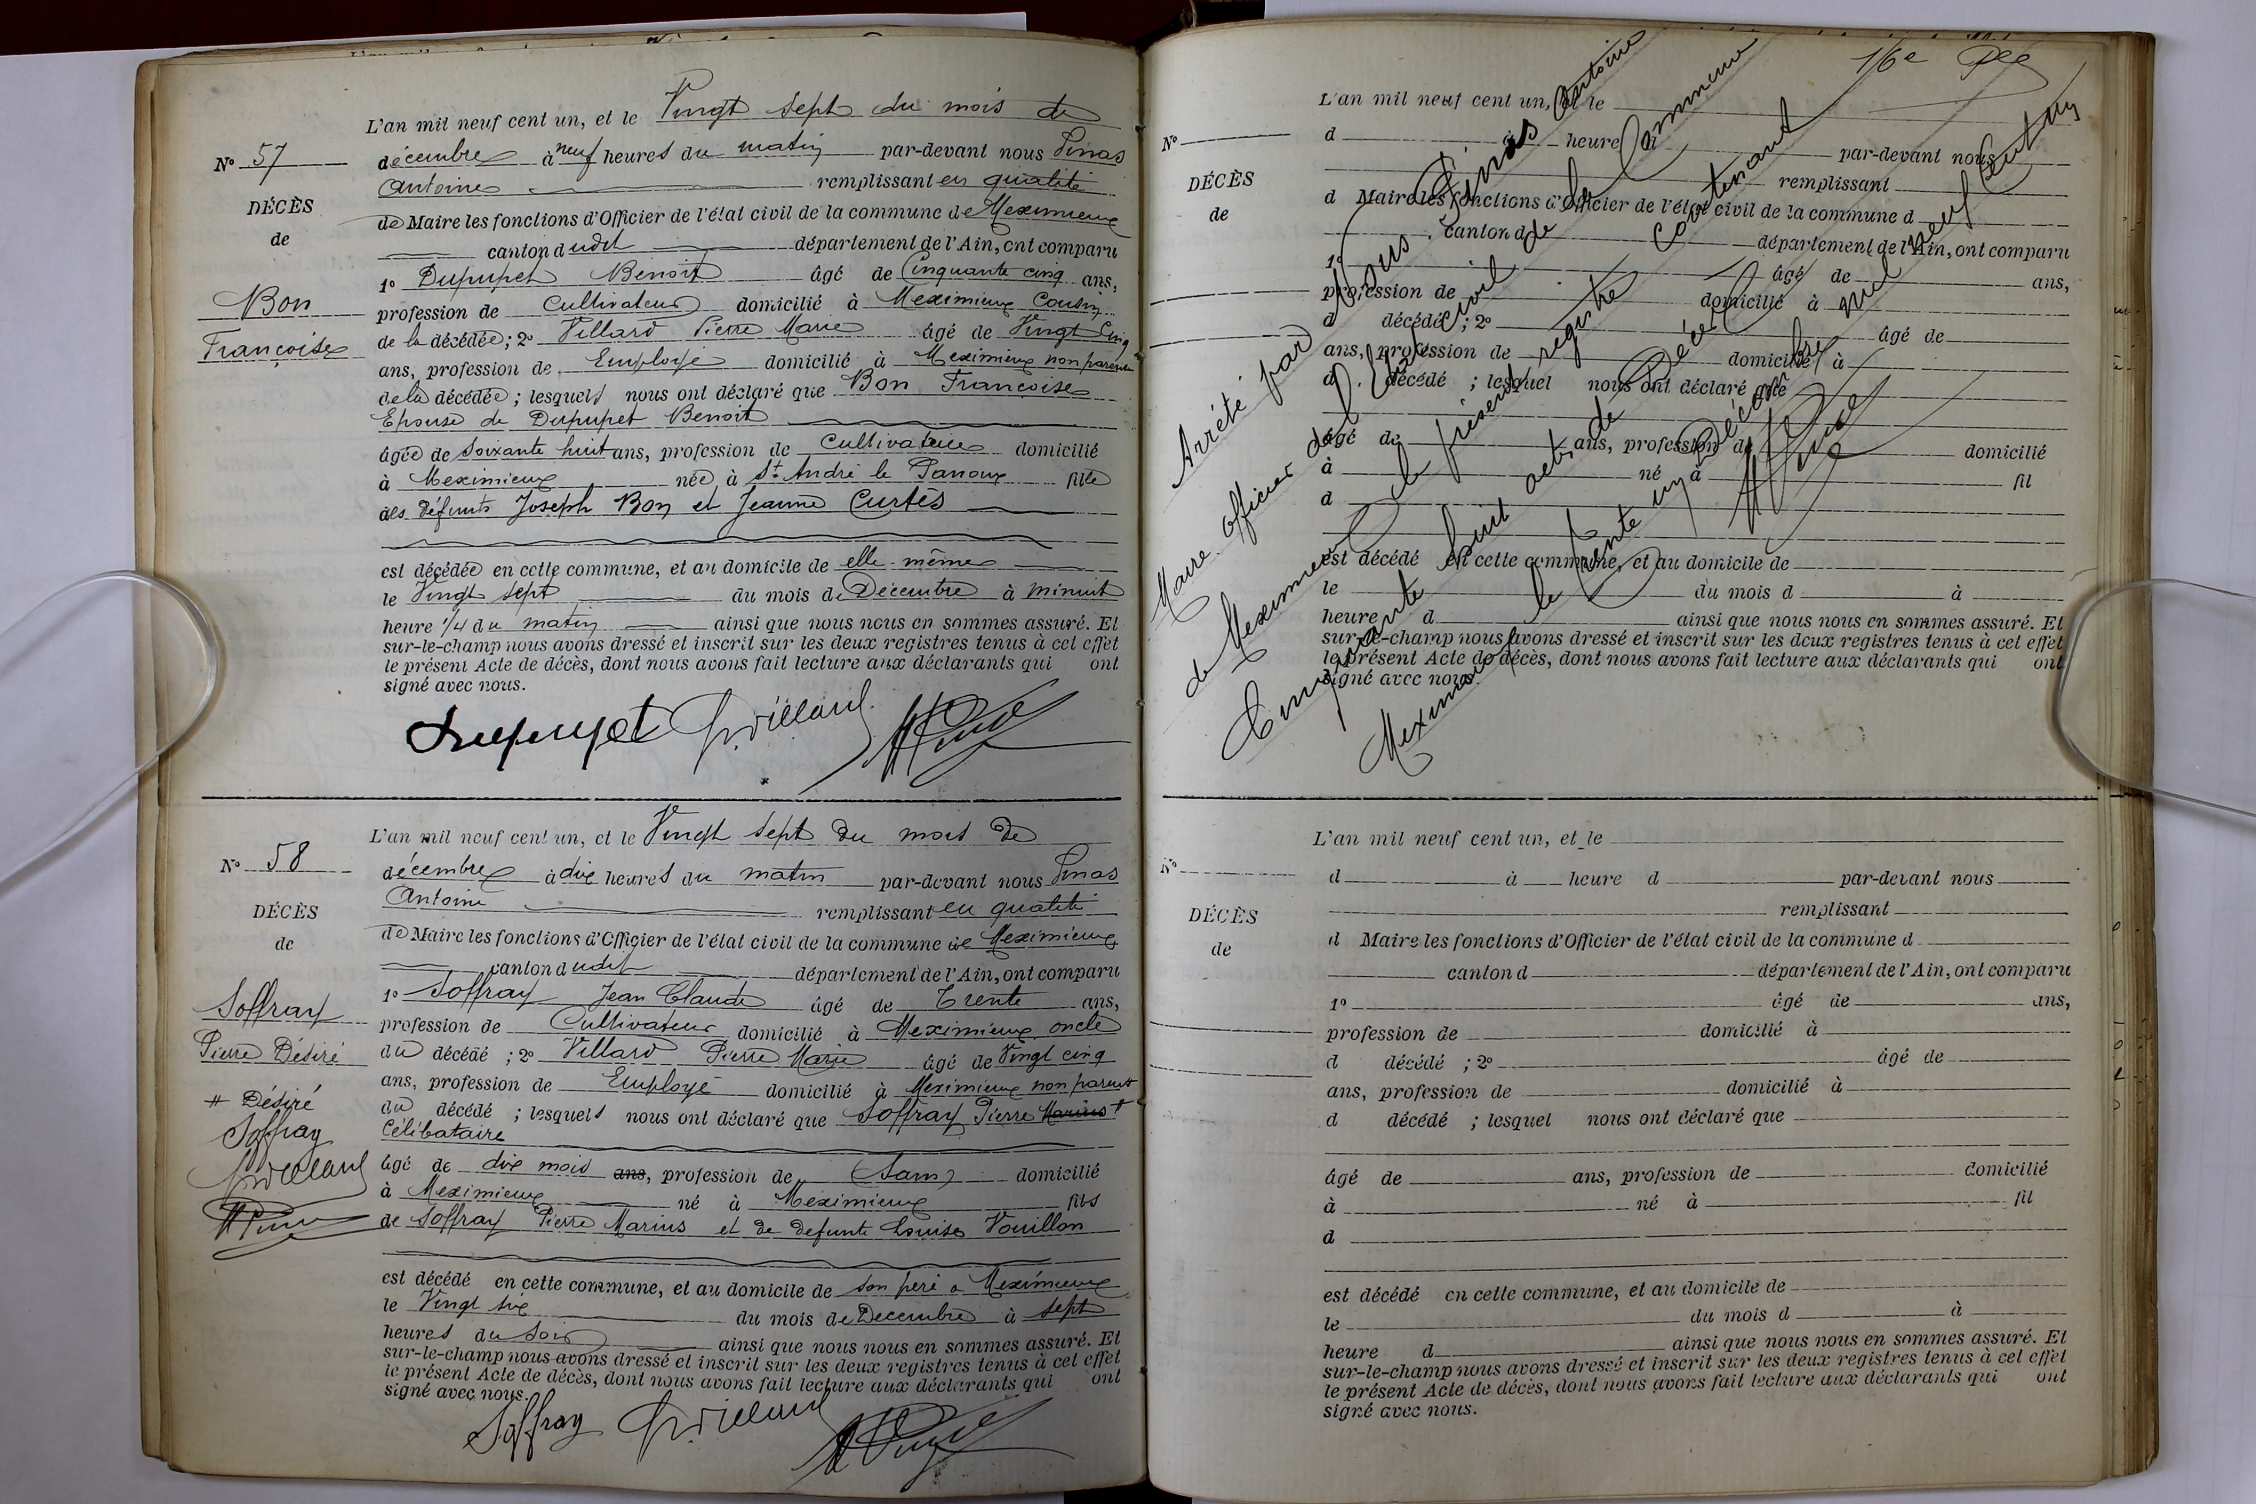 L'an mil neuf cent un, et le Vingt sept du mois de
N° 57
décembre à neuf heures du matin par-devant nous Pinas
Antoine remplissant en qualité
DÉCÈS
de Maire les fonctions d'Officier de l'état civil de la commune de Meximieux
de
canton dudit département de l'Ain, ont comparu
1° Dupupet Benoit âgé de Cinquante cinq ans,
Bon
profession de Cultivateur domicilié à Meximieux Cousin
Françoise
de la décédée ; 2° Villard Pierre Marie âgé de Vingt cinq
ans, profession de Employé domicilié à Meximieux non parent
de la décédée ; lesquels nous ont déclaré que Bon Françoise
Epouse de Dupupet Benoit
âgée de Soixante huit ans, profession de Cultivateur domicilié
à Meximieux née à St André le Panoux fille
des défunts Joseph Bon et Jeanne Curtès
est décédée en cette commune, et au domicile de elle même
le Vingt sept du mois de Décembre à minuit
heure 1/4 du matin ainsi que nous nous en sommes assuré. Et
sur-le-champ nous avons dressé et inscrit sur les deux registres tenus à cet effet
le présent Acte de décès, dont nous avons fait lecture aux déclarants qui ont
signé avec nous.
Dupupet P. Villard A Pinas
L'an mil neuf cent un, et le Vingt sept du mois de
N° 58
décembre à dix heures du matin par-devant nous Pinas
Antoine remplissant en qualité
DÉCÈS
de Maire les fonctions d'Officier de l'état civil de la commune de Meximieux
de
canton dudit département de l'Ain, ont comparu
1° Soffray Jean Claude âgé de Trente ans,
Soffray
profession de Cultivateur domicilié à Meximieux oncle
Pierre Désiré
du décédé ; 2° Villard Pierre Marie âgé de Vingt cinq
ans, profession de Employé domicilié à Meximieux non parent
# Désiré
du décédé ; lesquels nous ont déclaré que Soffray Pierre Marius #
Soffray
Célibataire
P. Villard
âgé de dix mois ans, profession de Sans domicilié
à Meximieux né à Meximieux fils
A Pinas
de Soffray Pierre Marius et de defunte Louise Vouillon
est décédé en cette commune, et au domicile de son père a Meximieux
le Vingt six du mois de Decembre à sept
heures du soir ainsi que nous nous en sommes assuré. Et
sur-le-champ nous avons dressé et inscrit sur les deux registres tenus à cet effet
le présent Acte de décès, dont nous avons fait lecture aux déclarants qui ont
signé avec nous.
Soffray P. Villard A Pinas
16e
L'an mil neuf cent un, et le
N°
d à heure d par-devant nous
remplissant
DÉCÈS
d Maire les fonctions d'Officier de l'état civil de la commune d
de
canton d département de l'Ain, ont comparu
1° âgé de ans,
profession de domicilié à
d décédé ; 2° âgé de
ans, profession de domicilié à
d décédé ; lesquel nous ont déclaré que
âgé de ans, profession de domicilié
à né à fil
d
est décédé en cette commune, et au domicile de
le du mois d à
heure d ainsi que nous nous en sommes assuré. Et
sur-le-champ nous avons dressé et inscrit sur les deux registres tenus à cet effet
le présent Acte de décès, dont nous avons fait lecture aux déclarants qui ont
signé avec nous.
Arrêté par Nous Pinas Antoine
Maire officier de l'Etat Civil de la Commune
de Meximieux le présent registre contenant
Cinquante huit actes de Décès
Meximieux le trente un Décembre mil neuf Cent un
A Pinas
L'an mil neuf cent un, et le
N°
d à heure d par-devant nous
remplissant
DÉCÈS
d Maire les fonctions d'Officier de l'état civil de la commune d
de
canton d département de l'Ain, ont comparu
1° âgé de ans,
profession de domicilié à
d décédé ; 2° âgé de
ans, profession de domicilié à
d décédé ; lesquel nous ont déclaré que
âgé de ans, profession de domicilié
à né à fil
d
est décédé en cette commune, et au domicile de
le du mois d à
heure d ainsi que nous nous en sommes assuré. Et
sur-le-champ nous avons dressé et inscrit sur les deux registres tenus à cet effet
le présent Acte de décès, dont nous avons fait lecture aux déclarants qui ont
signé avec nous.